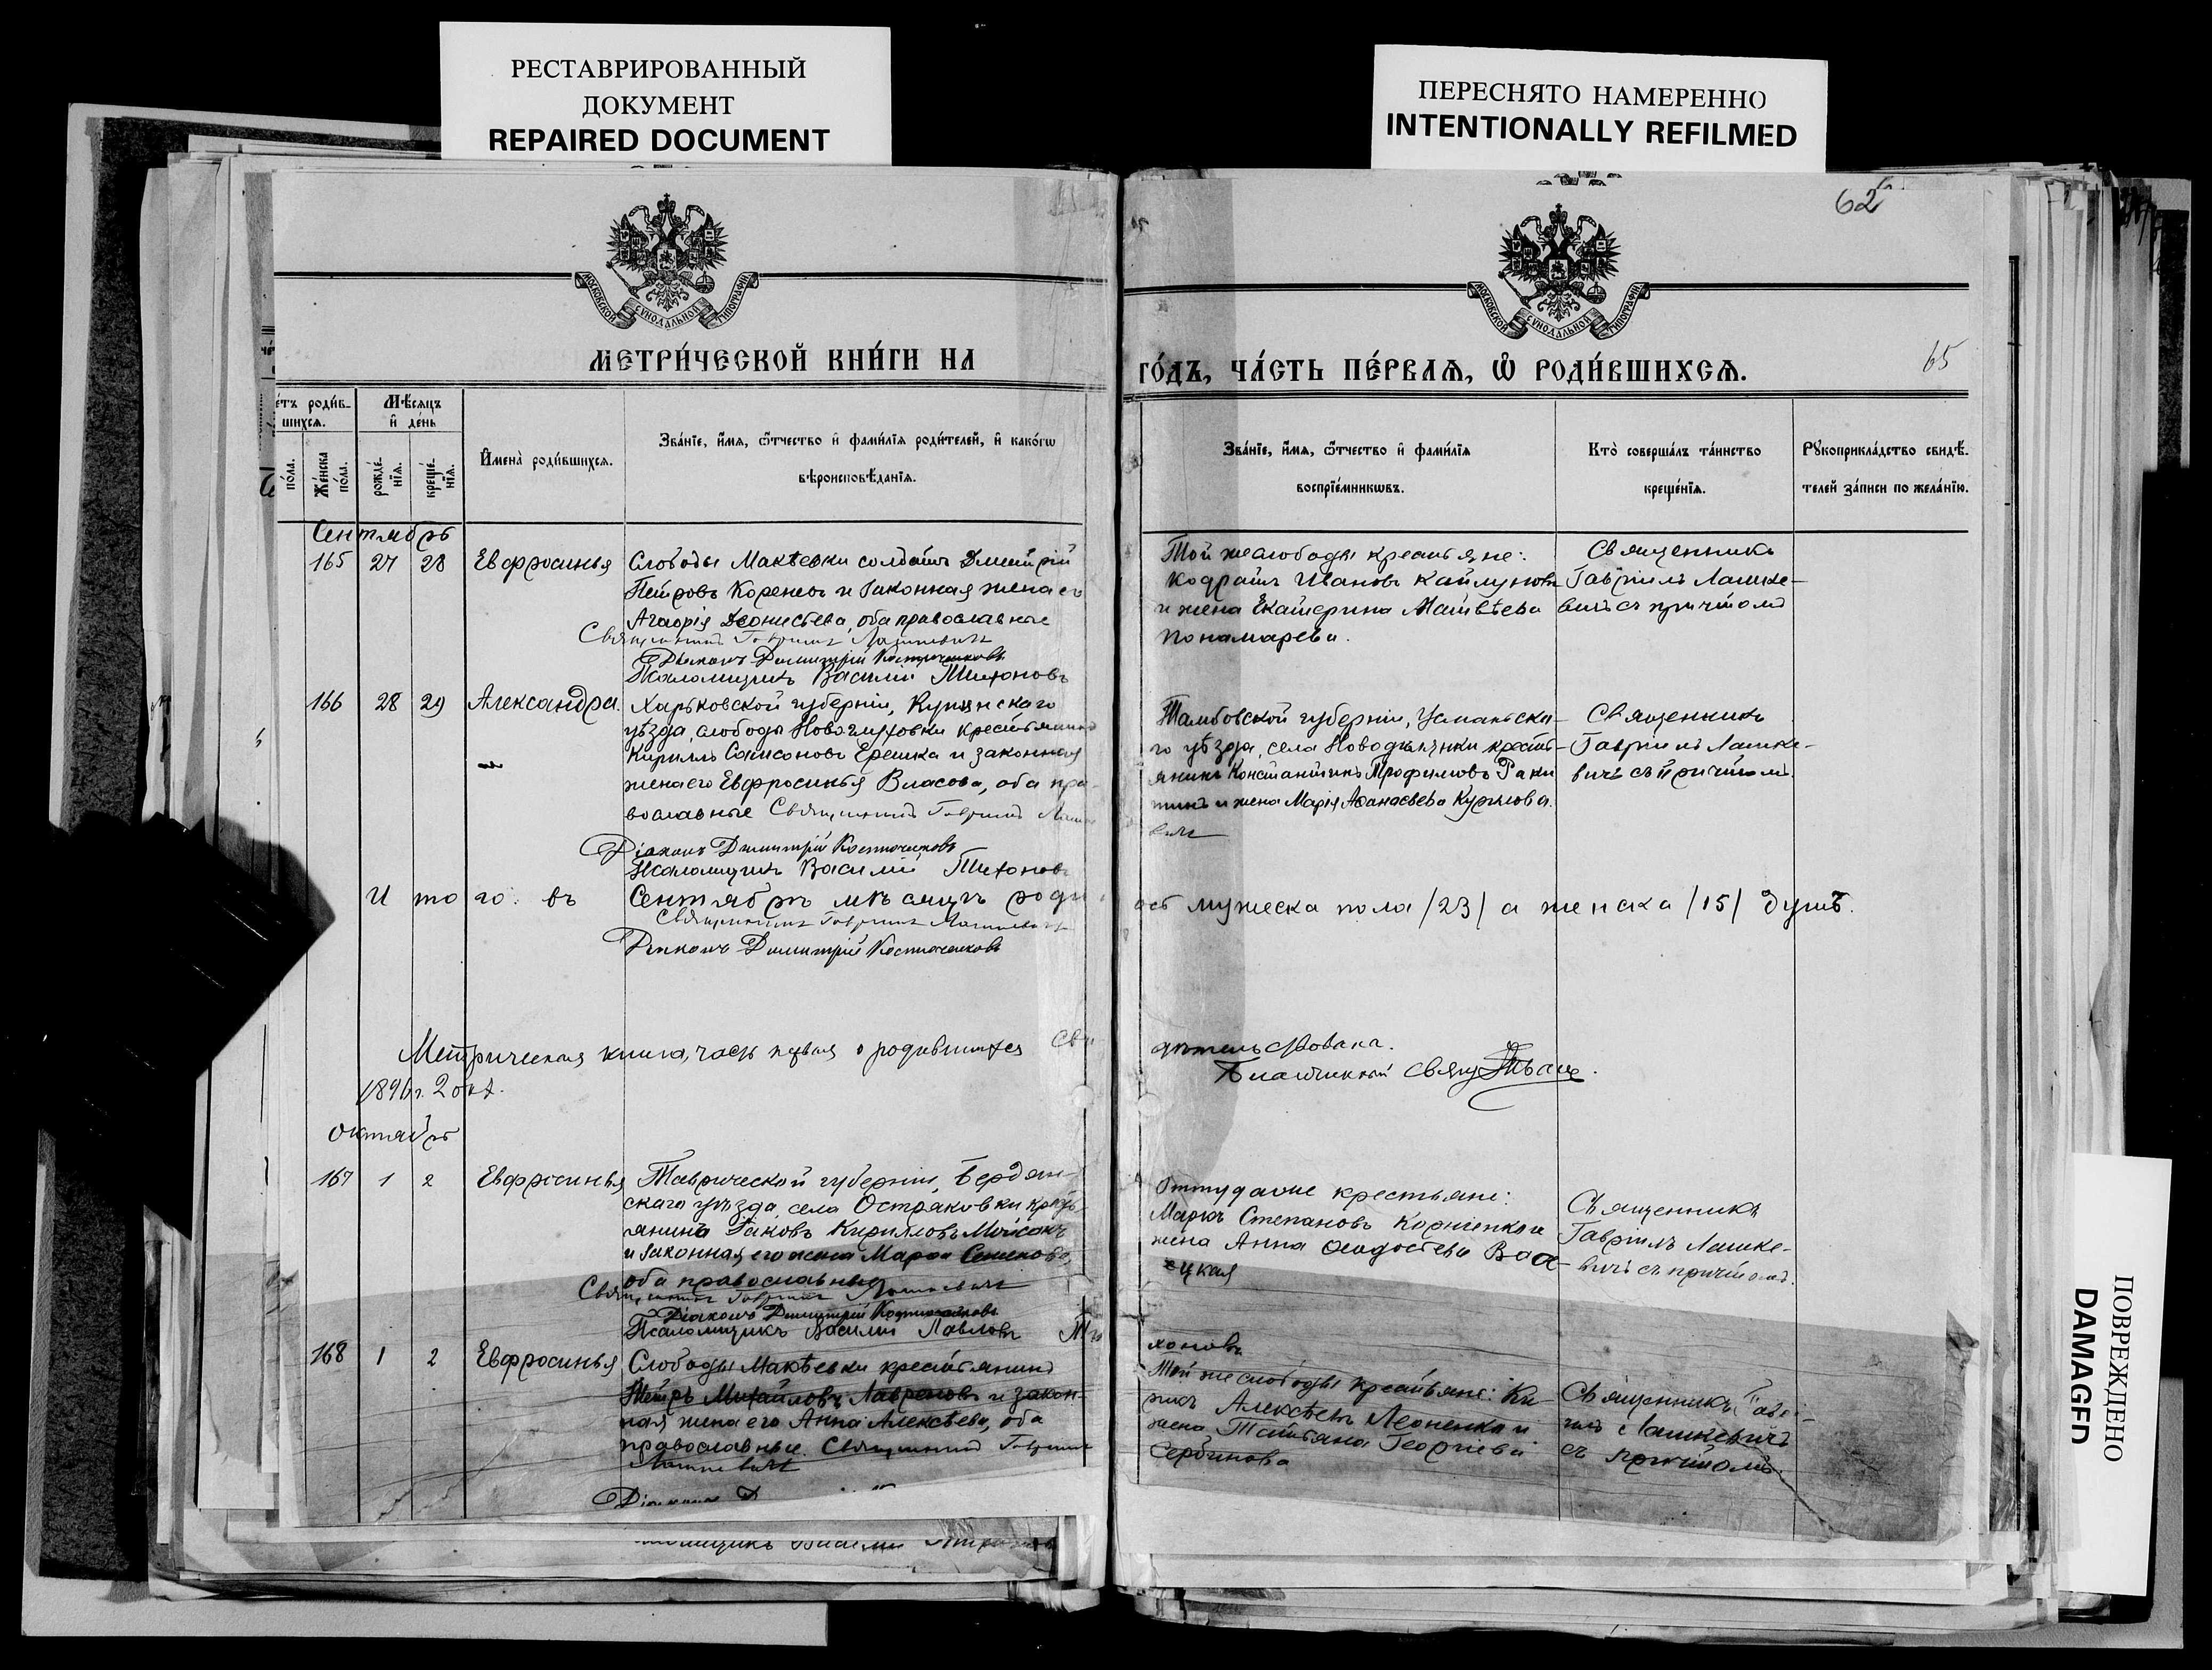 РЕСТАВРИРОВАННЫЙ
ДОКУМЕНТ
REPAIRED DOCUMENT
ПЕРЕСНЯТО НАМЕРЕННО
INTENTIONALLY REFILMED
62
МОСКОВСКОЙ СѴНОДАЛЬНОЙ ТИПОГРАФІИ
МОСКОВСКОЙ СѴНОДАЛЬНОЙ ТИПОГРАФІИ
МЕТРИ́ЧЕСКОЙ КНИ́ГИ НА
ГО́ДЪ, ЧА́СТЬ ПЕ́РВАЯ, Ѡ҆ РОДИ́ВШИХСЯ.
65
е́тъ роди́в-
шихся.
Мѣ́сяцъ
и҆ де́нь
по́ла.
Же́нска
по́ла.
рожде́-
нїя.
креще́-
нїя.
И҆мена̀ роди́вшихся.
Зва́нїе, и҆́мя, ѻ҆́тчество и҆ фами́лїя роди́телей, и҆ како́гѡ
вѣроисповѣ́данїя.
Зва́нїе, и҆́мя, ѻ҆́тчество и҆ фами́лїя
воспрїе́мникѡвъ.
Кто̀ соверша́лъ та́инство
креще́нїя.
Рꙋкоприкла́дство свидѣ́-
телей за́писи по жела́нїю.
Сентябрь
165 27 28 Евфросинья Слободы Макѣевки солдатъ Дмитрій
Петровъ Кореневъ и законная жена его
Агафія Деонисьева, оба православные
Священникъ Гавріилъ Лашкевичъ
Діаконъ Димитрій Костюченковъ
Псаломщикъ Василій Тихоновъ
Той же слободы крестьяне:
Кодратъ Ивановъ Кайлуновъ
и жена Екатерина Матвѣева
Пономарева.
Священникъ
Гавріилъ Лашке-
вичъ съ причтомъ
166 28 29 Александра. Харьковской губерніи, Купянскаго
уѣзда, слободы Новоглуховки крестьянинъ
Кирилъ Самсоновъ Ерешка и законная
жена его Евфросинья Власова, оба пра-
вославные Священникъ Гавріилъ Лашке
Діаконъ Димитрій Костюченковъ
Псаломщикъ Василій Тихоновъ
Тамбовской губерніи, Усманьска-
го уѣзда, села крестъ-
янинъ Константинъ Трофимовъ Раки
тинъ и жена Марія Аѳанасьева Курилова.
вичъ
Священникъ
Гавріилъ Лашке-
вичъ съ причтомъ.
Итого: въ Сентябрѣ мѣсяцѣ роди
ось мужеска пола /23/ а женска /15/ душъ.
Священникъ Гавріилъ Лашкевичъ
Діаконъ Димитрій Костюченковъ
Метрическая книга, часть первая о родившихся сви
дѣтельствована.
1896 г. 2 окт.
Благочинный Свящ
Октябрь
167 1 2 Евфросинья Таврической губерніи, Бердян-
скаго уѣзда, села Остраковки кресть-
янинъ Іаковъ Кирилловъ Мойсакъ
и законная его жена Марѳа Семенова,
оба православные
Священникъ Гавріилъ Лашкевичъ
Діаконъ Димитрій Костюченковъ
Псаломщикъ Василій Павловъ Ти
хоновъ
Оттуда же крестьяне:
Маркъ Степановъ Корніенко и
жена Анна Ѳеодосіева
цкая
Священникъ
Гавріилъ Лашке-
вичъ съ причтомъ.
168 1 2 Евфросинья Слободы Макѣевки крестьянинъ
Петръ Михайловъ Лавреновъ и закон-
ная жена его Анна Алексѣева, оба
православные. Священникъ Гавріилъ
Лашкевичъ
Діаконъ Д
Той же слободы крестьяне: Ки-
рилъ Алексѣевъ Леоненко и
жена Татьяна Георгіева
Сербинова
Священникъ Гаврі-
илъ Лашкевичъ
съ причтомъ.
ПОВРЕЖДЕНО
DAMAGED